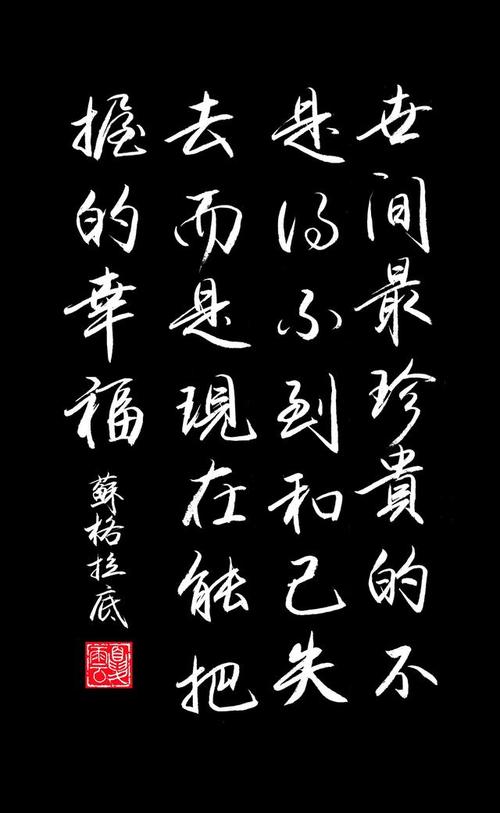 世间最珍貴的不
是得不到和已失
去而是現在能把
握的幸福
蘇格拉底
夏雲